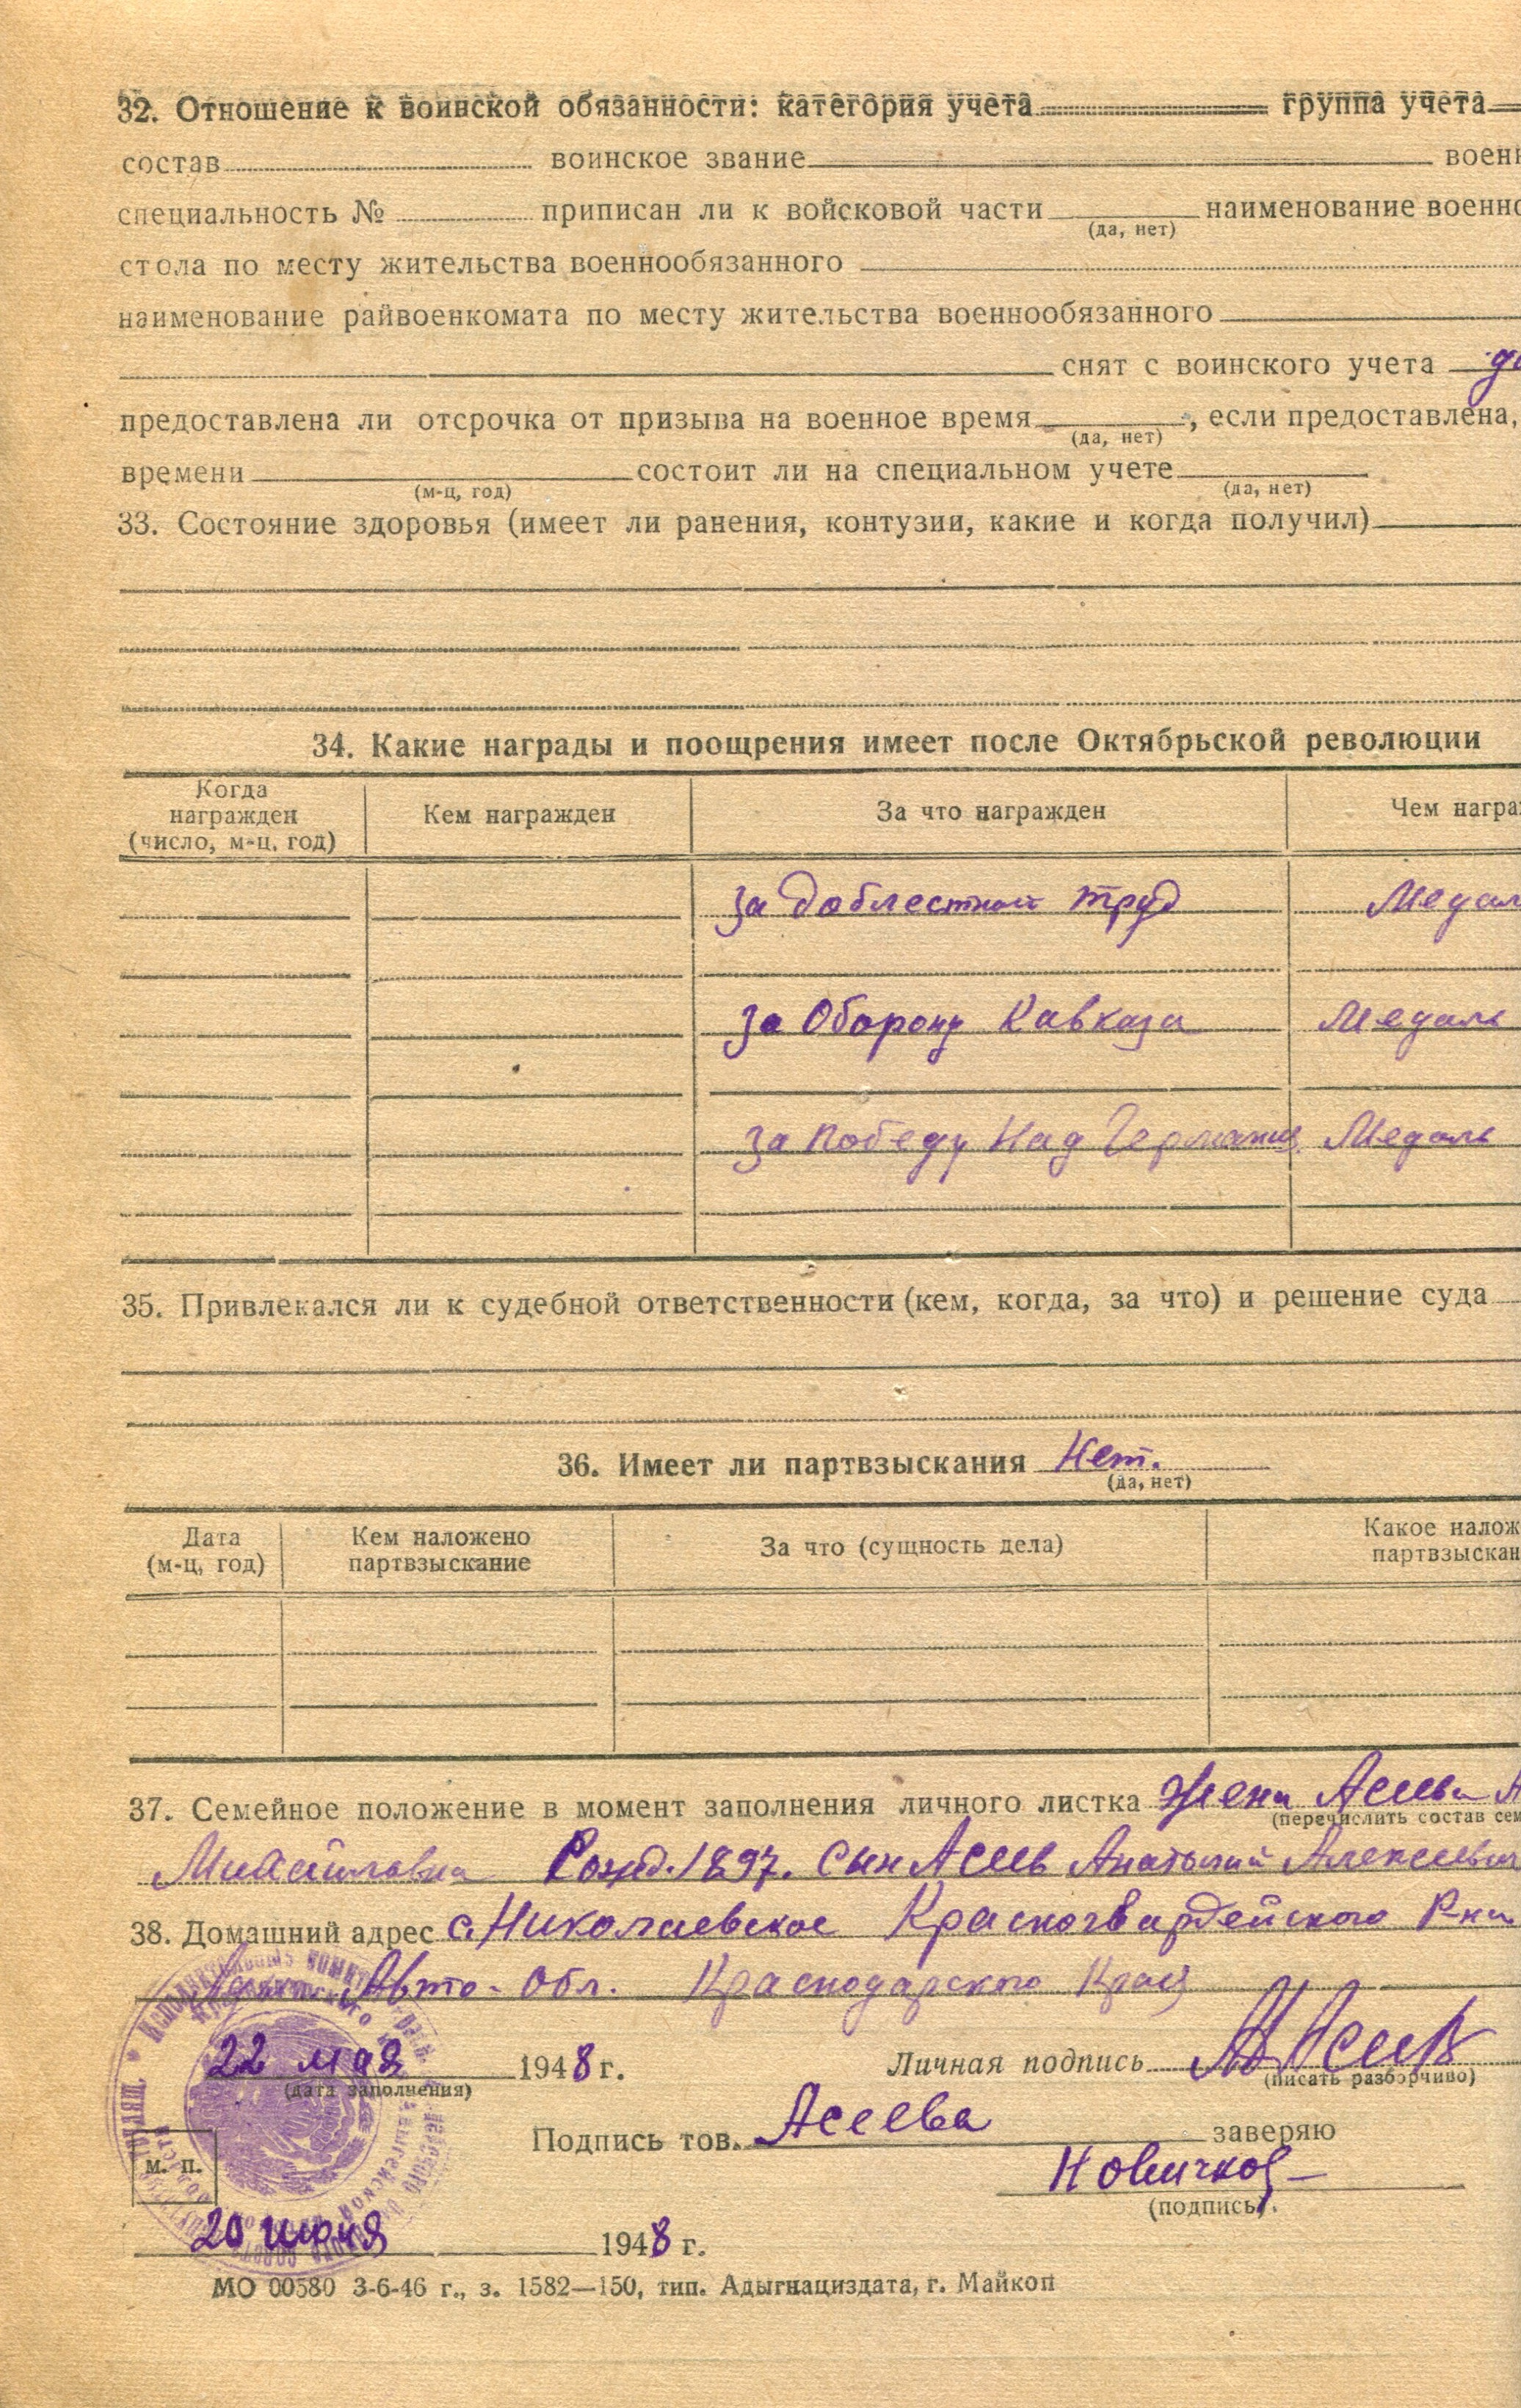 32. Отношение к воинской обязанности: категория учета группа учета
состав воинское звание военн
специальность № приписан ли к войсковой части наименование военно
(да, нет)
стола по месту жительства военнообязанного
наименование райвоенкомата по месту жительства военнообязанного
снят с воинского учета
предоставлена ли отсрочка от призыва на военное время , если предоставлена,
(да, нет)
времени состоит ли на специальном учете
(м-ц, год) (да, нет)
33. Состояние здоровья (имеет ли ранения, контузии, какие и когда получил)
34. Какие награды и поощрения имеет после Октябрьской революции
Когда награжден (число, м-ц, год) Кем награжден За что награжден Чем награ
за доблестный труд Медал
за Оборону Кавказа Медаль
за Победу Над Германией Медаль
35. Привлекался ли к судебной ответственности (кем, когда, за что) и решение суда
36. Имеет ли партвзыскания Нет.
(да, нет)
Дата (м-ц, год) Кем наложено партвзыскание За что (сущность дела) Какое налож партвзыскан
37. Семейное положение в момент заполнения личного листка Жена Асеева А
(перечислить состав сем
Михайловна Рожд. 1897. сын Асеев Анатолий Алексеевич
38. Домашний адрес с. Николаевское Красногвардейского Р-на
Авто- Обл. Краснодарского Края
22 мая 1948 г. Личная подпись Асеев
(дата заполнения) (писать разборчиво)
Подпись тов. Асеева заверяю
м. п. Новичков
(подпись).
20 июня 1948 г.
МО 00580 3-6-46 г., з. 1582—150, тип. Адыгнациздата, г. Майкоп